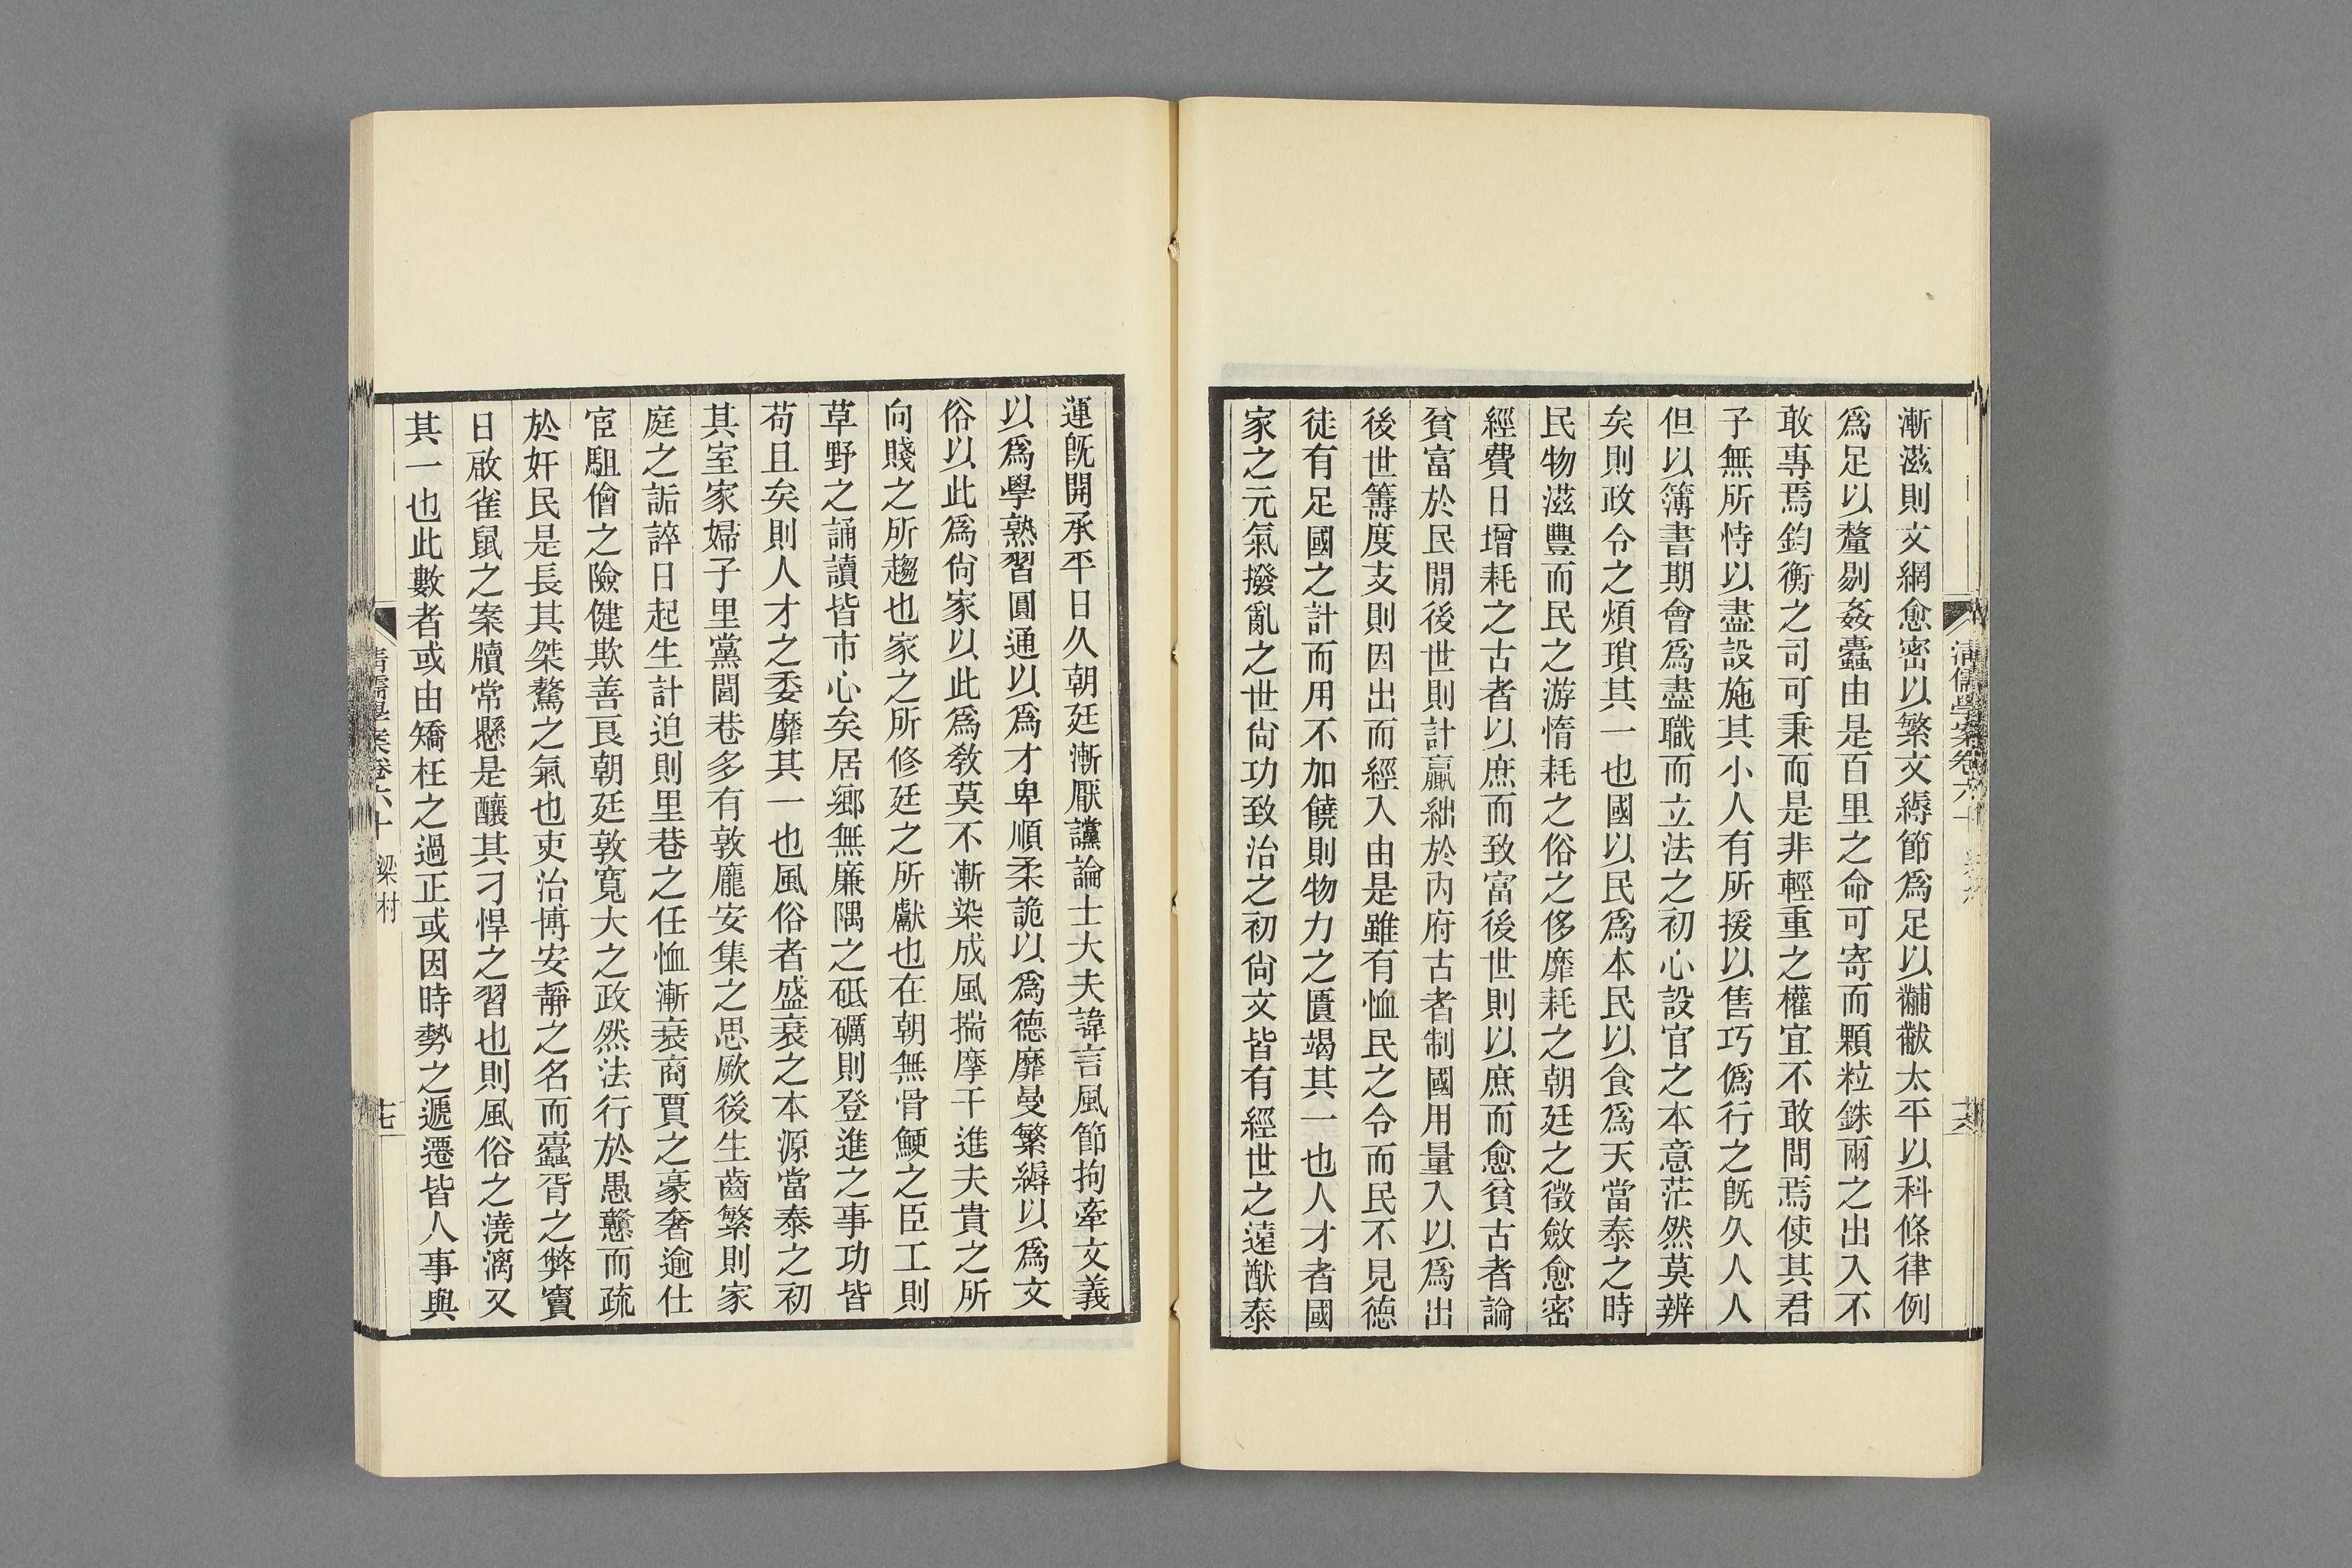 漸滋則文網愈密以繁文縟節爲足以黼黻太平以科條律例
爲足以釐剔姦蠹由是百里之命可寄而顆粒銖兩之出入不
敢專焉鈞衡之司可秉而是非輕重之權宜不敢問焉使其君
子無所恃以盡設施其小人有所援以售巧僞行之旣久人人
但以簿書期會爲盡職而立法之初心設官之本意茫然莫辨
矣則政令之煩瑣其一也國以民爲本民以食爲天當泰之時
民物滋豐而民之游惰耗之俗之侈靡耗之朝廷之徵斂愈密
經費日增耗之古者以庶而致富後世則以庶而愈貧古者論
貧富於民閒後世則計贏絀於內府古者制國用量入以爲出
後世籌度支則因出而經入由是雖有恤民之令而民不見德
徒有足國之計而用不加饒則物力之匱竭其一也人才者國
家之元氣撥亂之世尙功致治之初尙文皆有經世之遠猷泰
運旣開承平日久朝廷漸厭讜論士大夫諱言風節拘牽文義
以爲學熟習圓通以爲才卑順柔詭以爲德靡曼繁縟以爲文
俗以此爲尙家以此爲敎莫不漸染成風揣摩干進夫貴之所
向賤之所趨也家之所修廷之所獻也在朝無骨鯁之臣工則
草野之誦讀皆市心矣居鄉無廉隅之砥礪則登進之事功皆
苟且矣則人才之委靡其一也風俗者盛衰之本源當泰之初
其室家婦子里黨閭巷多有敦龐安集之思厥後生齒繁則家
庭之詬誶日起生計迫則里巷之任恤漸衰商賈之豪奢逾仕
宦駔儈之險健欺善良朝廷敦寬大之政然法行於愚戇而疏
於奸民是長其桀驁之氣也吏治博安靜之名而蠹胥之弊竇
日啟雀鼠之案牘常懸是釀其刁悍之習也則風俗之澆漓又
其一也此數者或由矯枉之過正或因時勢之遞遷皆人事與
清儒學案卷六十 梁村
十七